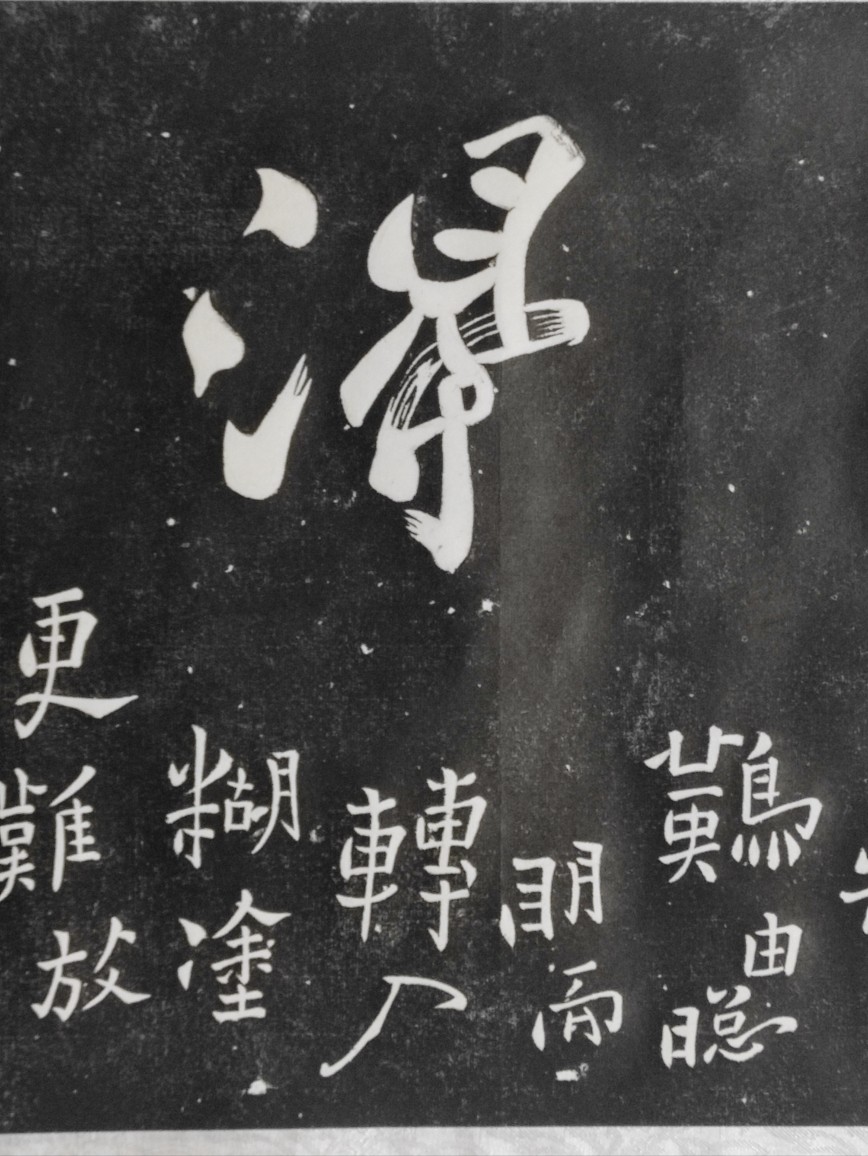 得
難由聰
明而
轉入
糊塗
更難放